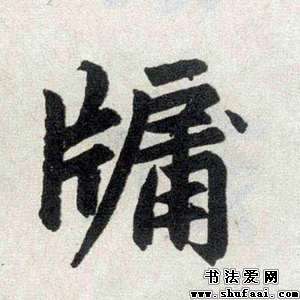 牗
书法爱网
www.shufaai.com